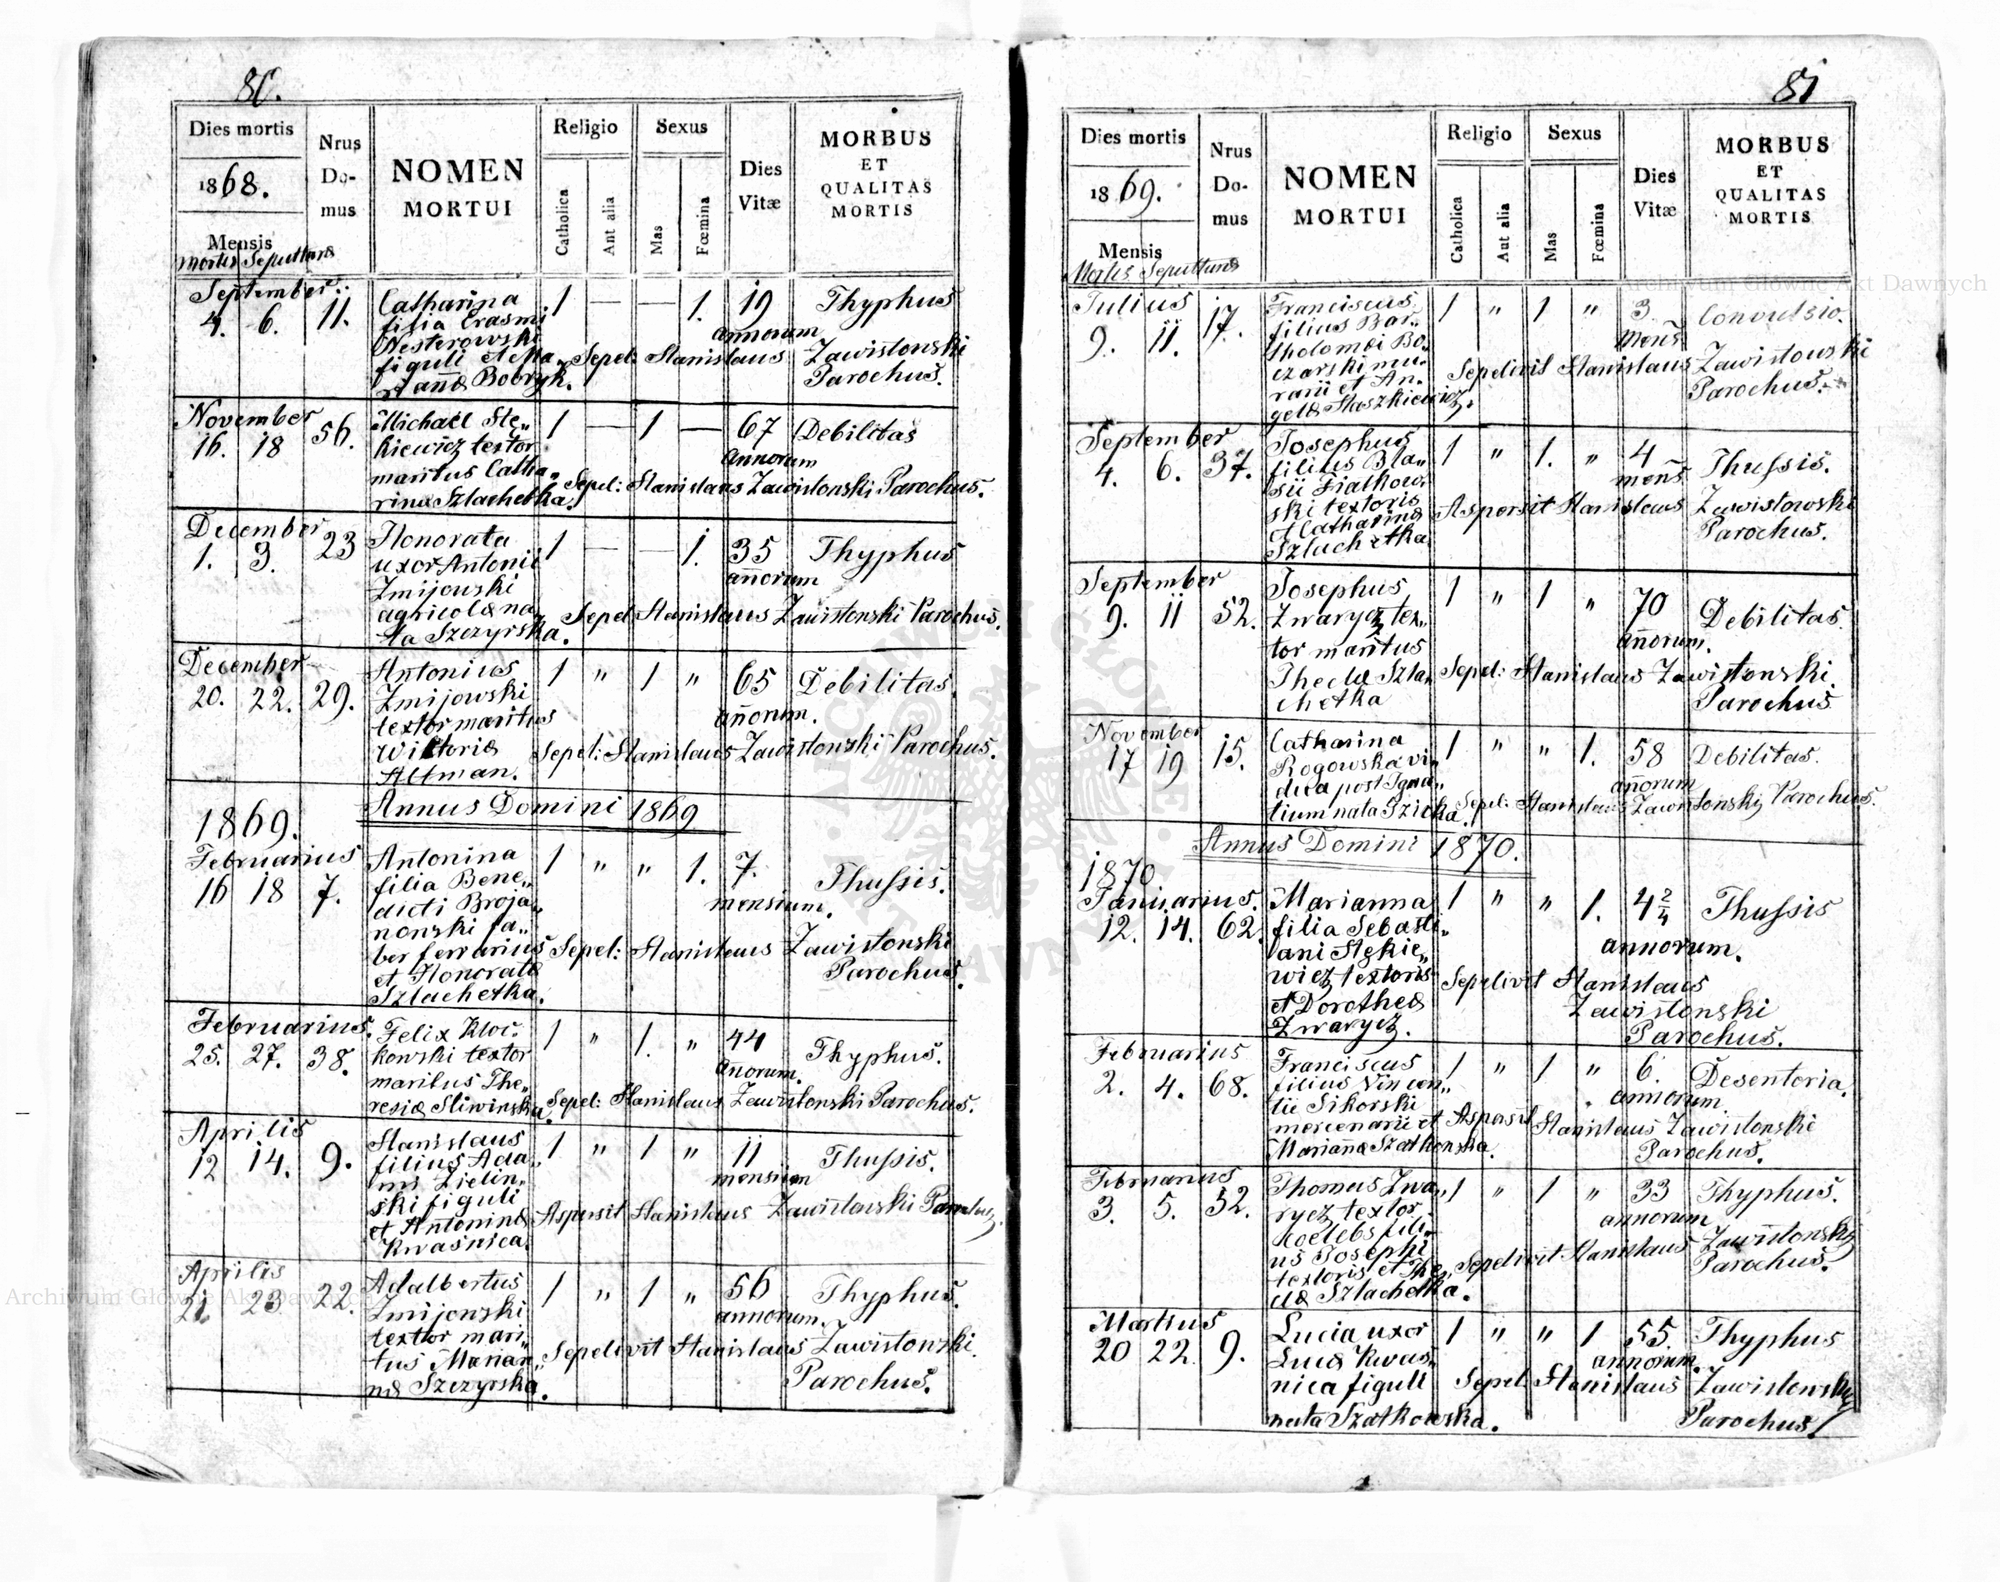 80.
Dies mortis
1868.
Mensis
Mortis Sepulturæ
Nrus
Do-
mus
NOMEN
MORTUI
Religio
Catholica
Aut alia
Sexus
Mas
Fœmina
Dies
Vitæ
MORBUS
ET
QUALITAS
MORTIS
September
4. 6. 11. Catharina 1 — — 1. 19 Thyphus
filia Erasmi annorum
Nesterowski
figuli et Ma„ Sepel: Stanislaus Zawistowski
riannæ Bobryk. Parochus.
November
16. 18 56. Michael Ste„ 1 — 1 — 67 Debilitas
kiewicz textor annorum
maritus Catha„
rinæ Szlachetka. Sepel: Stanislaus Zawistowski Parochus.
December
1. 3. 23 Honorata 1 — — 1. 35 Thyphus
uxor Antonii annorum
Zmijowski
agricolæ na„ Sepel Stanislaus Zawistowski Parochus.
ta Szczyrska.
December
20. 22. 29. Antonius 1 „ 1 „ 65 Debilitas.
Zmijowski annorum.
textor maritus
Wiktoriæ Sepel: Stanislaus Zawistowski Parochus.
Altman.
1869. Annus Domini 1869
Februarius
16 18 7. Antonina 1 „ „ 1. 7. Thussis.
filia Bene„ mensium.
dicti Broja„
nowski fa„
ber ferrarius Sepel: Stanislaus Zawistowski
et Honoratæ Parochus.
Szlachetka.
Februarius.
25. 27. 38. Felix Kloc 1 „ 1. „ 44 Thyphus.
kowski textor annorum.
maritus The„
resiæ Sliwinska. Sepel: Stanislaus Zawistowski Parochus.
Aprilis
12 14. 9. Stanislaus 1 „ 1 „ 11 Thussis.
filius Ada„ mensium
mi Zielin„
ski figuli
et Antoninæ Aspersit Stanislaus Zawistowski Parochus.
Kwaśnica.
Aprilis
21. 23 22. Adalbertus 1 „ 1 „ 56 Thyphus.
Zmijowski annorum.
textor mari„
tus Marian„ Sepelivit Stanislaus Zawistowski.
næ Szczyrska. Parochus.
81
Dies mortis
1869.
Mensis
Mortis Sepulturæ
Nrus
Do-
mus
NOMEN
MORTUI
Religio
Catholica
Aut alia
Sexus
Mas
Fœmina
Dies
Vitæ
MORBUS
ET
QUALITAS
MORTIS
Julius
9. 11. 17. Franciscus 1 „ 1 „ 3. Convulsio.
filius Bar„ mens
tholomei Bo„
czarski mu„ Sepelivit Stanislaus Zawistowski
rarii et An„ Parochus.
gelæ Staszkiewicz.
September
4. 6. 37. Josephus 1 „ 1. „ 4 Thussis.
filius Bla„ mens
sii Fiałkow„
ski textoris Aspersit Stanislaus Zawistowski
et Catharinæ Parochus.
Szlachetka
September
9. 11 52. Josephus 1 „ 1 „ 70 Debilitas.
Zwarycz tex„ annorum.
tor maritus
Theclæ Szla„ Sepel: Stanislaus Zawistowski.
chetka Parochus
November
17 19 15. Catharina 1 „ „ 1. 58 Debilitas.
Rogowska vi„ annorum
dua post Igna„
tium nata Szicka. Sepel: Stanislaus Zawistowski Parochus.
Annus Domini 1870.
1870
Januarius.
12. 14. 62. Marianna 1 „ „ 1. 4 2/4 Thussis
filia Sebasti„ annorum.
ani Stękie„
wicz textoris Sepelivit Stanislaus
et Dorotheæ Zawistowski
Zwarycz. Parochus.
Februarius
2. 4. 68. Franciscus 1 „ 1 „ 6. Desentoria.
filius Vincen„ annorum
tii Sikorski
mercenarii et Aspersit Stanislaus Zawistowski
Mariannæ Szatkowska. Parochus.
Februarius
3. 5. 52. Thomas Zwa„ 1 „ 1 „ 33 Thyphus.
rycz textor annorum
koelebs fili„
us Josephi
textoris et The„ Sepelivit Stanislaus Zawistowski
clæ Szlachetka. Parochus.
Martius
20 22 9. Lucia uxor 1 „ „ 1 55. Thyphus
Lucæ Kwaś„ annorum.
nica figuli Sepel Stanislaus Zawistowski
nata Szatkowska. Parochus
Archiwum Główne Akt Dawnych
Archiwum Główne Akt Dawnych
ARCHIWUM GŁÓWNE AKT DAWNYCH